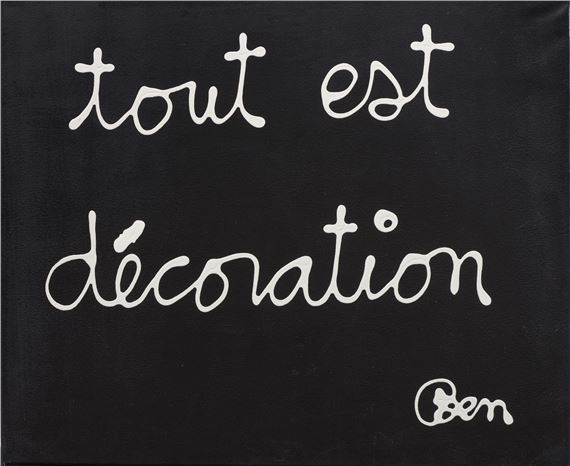 tout est
décoration
Ben